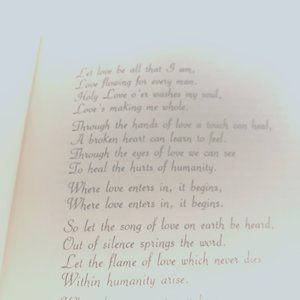 Let love be all that I am,
Love flowing for every man.
Holy Love o'er washes my soul,
Love's making me whole.
Through the hands of love a touch can heal,
A broken heart can learn to feel.
Through the eyes of love we can see
To heal the hurts of humanity.
Where love enters in, it begins,
Where love enters in, it begins.
So let the song of love on earth be heard,
Out of silence springs the word.
Let the flame of love which never dies
Within humanity arise.